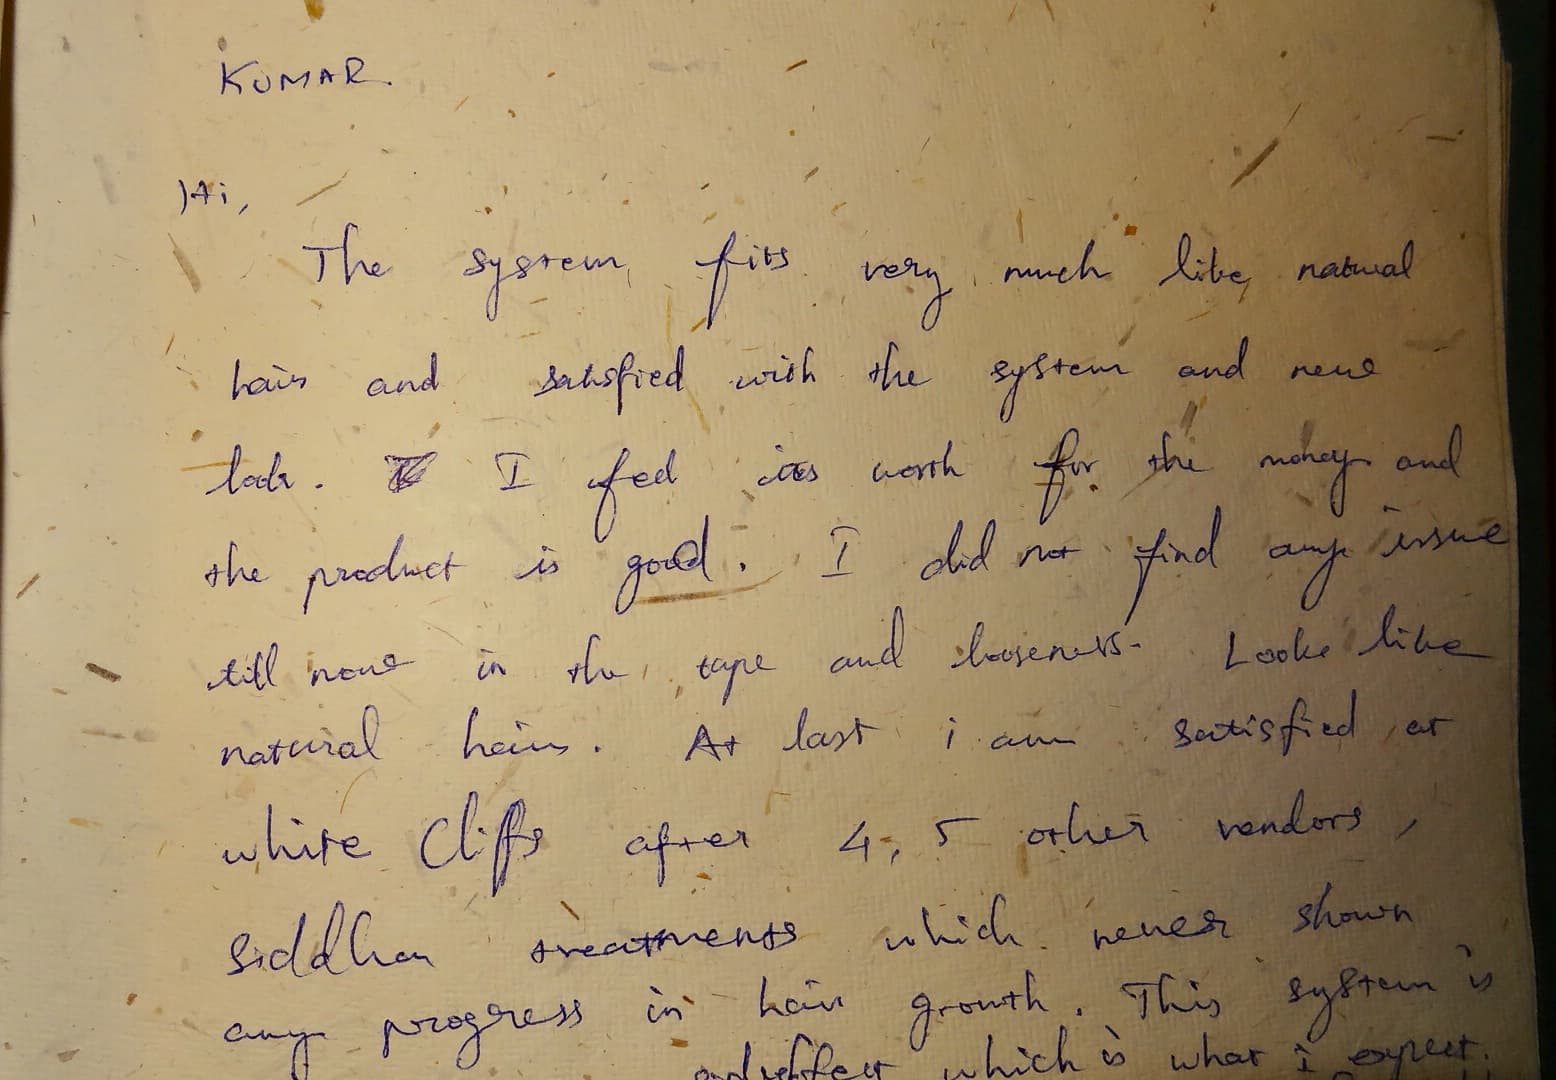 KUMAR
Hi,
The system fits very much like natural
hair and satisfied with the system and new
look. I feel its worth for the money and
the product is good. I did not find any issue
till now in the tape and looseness. Looks like
natural hair. At last i am satisfied at
white Cliffs after 4, 5 other vendors,
Siddha treatments which never shown
any progress in hair growth. This system is
which is what I expect.